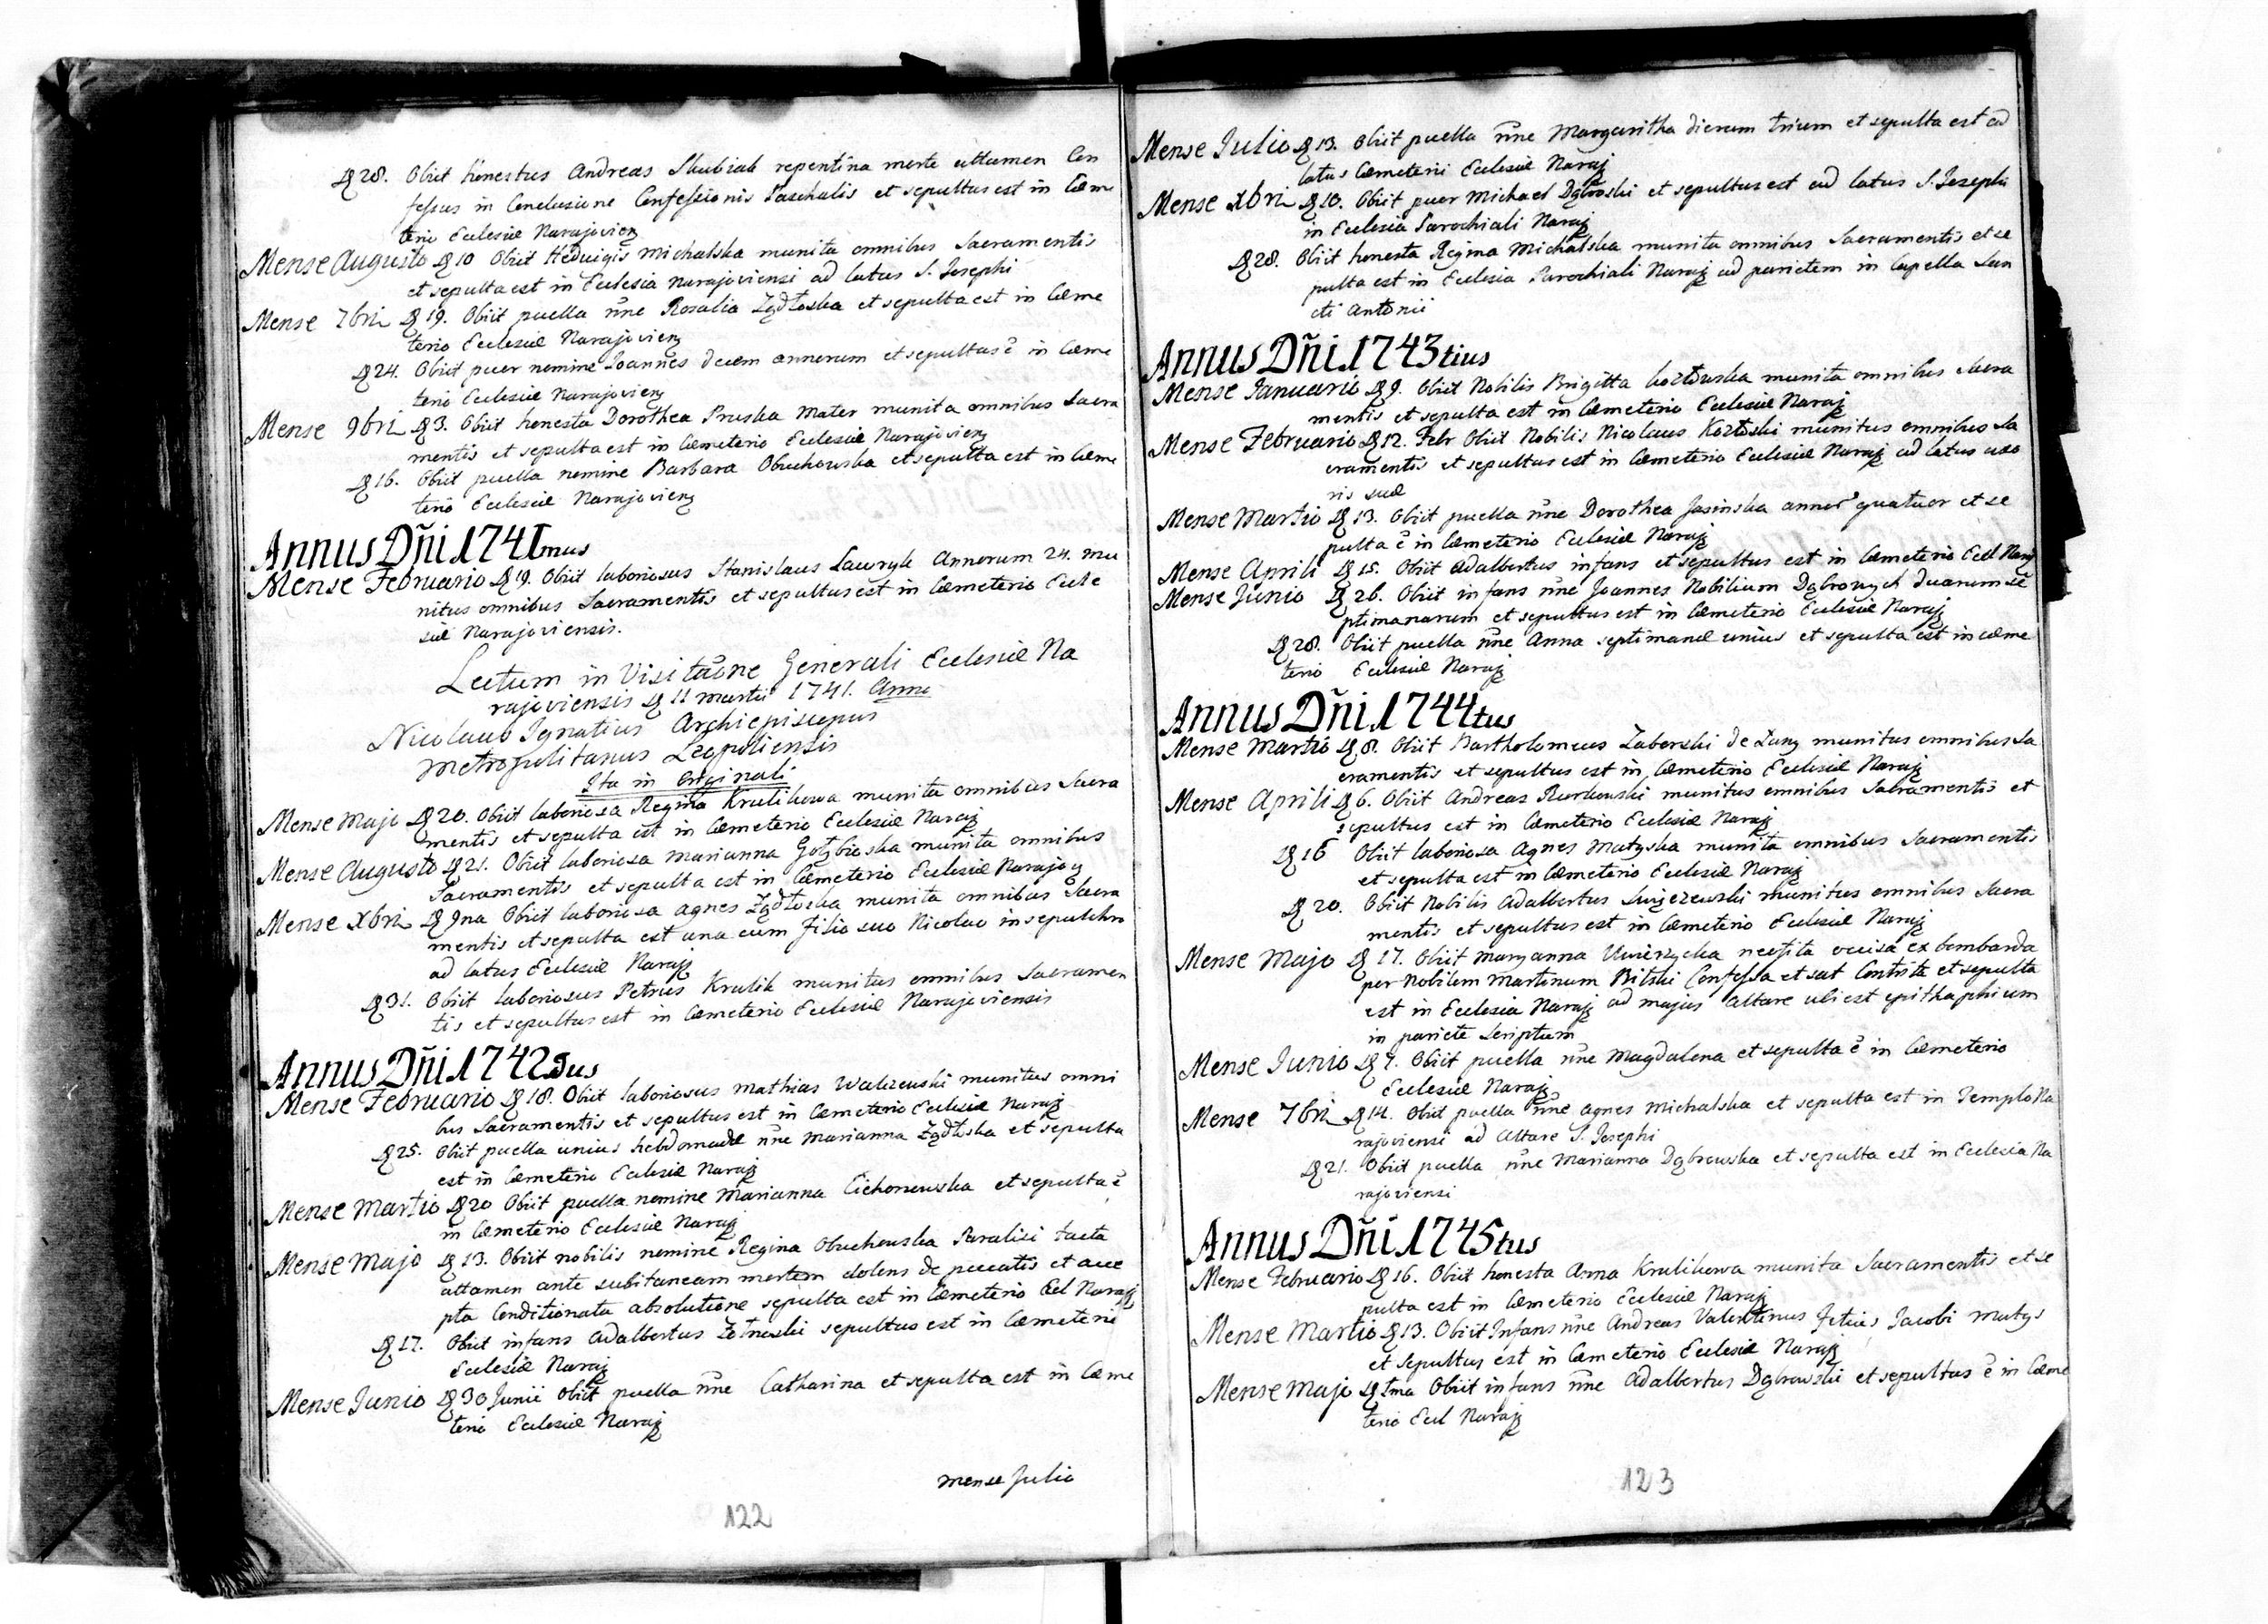 28. Obiit honestus Andreas Skubiak repentina morte attamen Con
fessus in Conclusione Confessionis Paschalis et sepultus est in Cæme
terio Ecclesiæ Narajovien
Mense Augusto 10 Obiit Heduigis Michalska munita omnibus Sacramentis
et sepulta est in Ecclesia Narajoviensi ad latus S. Josephi
Mense 7bri 19. Obiit puella nne Rosalia Zgdłoska et sepulta est in Cæme
terio Ecclesiæ Narajovien
24. Obiit puer nomine Joannes decem annorum et sepultus ē in Cæme
terio Ecclesiæ Narajovien
Mense 9bri 3. Obiit honesta Dorothea Pruska Mater munita omnibus Sacra
mentis et sepulta est in Cæmeterio Ecclesiæ Narajovien
16. Obiit puella nomine Barbara Obuchowska et sepulta est in Cæme
terio Ecclesiæ Narajovien
Annus Dñi 1741mus
Mense Februario 19. Obiit laboriosus Stanislaus Lawryk Annorum 24. mu
nitus omnibus Sacramentis et sepultus est in Cæmeterio Eccle
siæ Narajoviensis.
Lectum in Visitaõne Generali Ecclesiæ Na
rajoviensis 11 Martii 1741. Anno
Nicolaus Ignatius Archiepiscopus
Metropolitanus Leopoliensis
Ita in Originali
Mense Majo 20. Obiit laboriosa Regina Krulikowa munita omnibus Sacra
mentis et sepulta est in Cæmeterio Ecclesiæ Naraj
Mense Augusto 21. Obiit laboriosa Marianna Gołębioska munita omnibus
Sacramentis et sepulta est in Cæmeterio Ecclesiæ Narajo
Mense Xbri 9na Obiit laboriosa Agnes Zgdłoska munita omnibus Sacra
mentis et sepulta est una cum Filio suo Nicolao in sepulchro
ad latus Ecclesiæ Naraj
31. Obiit laboriosus Petrus Krulik munitus omnibus Sacramen
tis et sepultus est in Cæmeterio Ecclesiæ Narajoviensis
Annus Dñi 1742dus
Mense Februario 18. Obiit laboriosus Mathias Walczewski munitus omni
bus Sacramentis et sepultus est in Cæmeterio Ecclesiæ Naraj
25. Obiit puella unius hebdomadæ nne Marianna Zgdłoska et sepulta
est in Cæmeterio Ecclesiæ Naraj
Mense Martio 20 Obiit puella nomine Marianna Cichonowska et sepulta ē
in Cæmeterio Ecclesiæ Naraj
Mense Majo 13. Obiit nobilis nomine Regina Obuchowska Paralisi tacta
attamen ante subitaneam mortem dolens de peccatis et acce
pta Conditionata absolutione sepulta est in Cæmeterio Ecl Naraj
17. Obiit infans Adalbertus sepultus est in Cæmeterio
Ecclesiæ Naraj
Mense Junio 30 Junii Obiit puella nne Catharina et sepulta est in Cæme
terio Ecclesiæ Naraj
Mense Julio
122
Mense Julio 13. Obiit puella nne Margaritha dierum trium et sepulta est ad
latus Cæmeterii Ecclesiæ Naraj
Mense Xbri 10. Obiit puer Michael Dąbroski et sepultus est ad latus S. Josephi
in Ecclesia Parochiali Naraj
28. Obiit honesta Regina Michalska munita omnibus Sacramentis et se
pulta est in Ecclesia Parochiali Naraj ad parietem in Capella San
cti Antonii
Annus Dñi 1743tius
Mense Januario 9. Obiit Nobilis Brigitta Kozłowska munita omnibus Sacra
mentis et sepulta est in Cæmeterio Ecclesiæ Naraj
Mense Februario 12. Febr Obiit Nobilis Nicolaus Kozłoski munitus omnibus Sa
cramentis et sepultus est in Cæmeterio Ecclesiæ Naraj ad latus uxo
ris suæ
Mense Martio 13. Obiit puella nne Dorothea Jasinska annor quatuor et se
pulta ē in Cæmeterio Ecclesiæ Naraj
Mense Aprili 15. Obiit Adalbertus infans et sepultus est in Cæmeterio Ecl Naraj
Mense Junio 26. Obiit infans nne Joannes Nobilium Dąbrowych duarum se
ptimanarum et sepultus est in Cæmeterio Ecclesiæ Naraj
28. Obiit puella nne Anna septimanæ unius et sepulta est in cæme
terio Ecclesiæ Naraj
Annus Dñi 1744tus
Mense Martio 8. Obiit Bartholomeus Zaborski de munitus omnibus Sa
cramentis et sepultus est in Cæmeterio Ecclesiæ Naraj
Mense Aprili 6. Obiit Andreas Rurkowski munitus omnibus Sacramentis et
sepultus est in Cæmeterio Ecclesiæ Naraj
16 Obiit laboriosa Agnes Matyska munita omnibus Sacramentis
et sepulta est in Cæmeterio Ecclesiæ Naraj
20. Obiit Nobilis Adalbertus munitus omnibus Sacra
mentis et sepultus est in Cæmeterio Ecclesiæ Naraj
Mense Majo 17. Obiit Maryanna neofita occisa ex bombarda
per Nobilem Martinum Bilski Confessa et sat Contrita et sepulta
est in Ecclesia Naraj ad majus Altare ubi est epithaphium
in pariete Scriptum
Mense Junio 7. Obiit puella nne Magdalena et sepulta ē in Cæmeterio
Ecclesiæ Naraj
Mense 7bri 14. Obiit puella nne Agnes Michalska et sepulta est in Templo Na
rajoviensi ad Altare S. Josephi
21. Obiit puella nne Marianna Dąbrowska et sepulta est in Ecclesia Na
rajoviensi
Annus Dñi 1745tus
Mense Februario 16. Obiit honesta Anna Krulikowa munita Sacramentis et se
pulta est in Cæmeterio Ecclesiæ Naraj
Mense Martio 13. Obiit Infans nne Andreas Valentinus Filius Jacobi Matys
et Sepultus est in Cæmeterio Ecclesiæ Naraj
Mense Majo 1ma Obiit infans nne Adalbertus Dąbrowski et sepultus ē in Cæme
terio Ecl Naraj
123